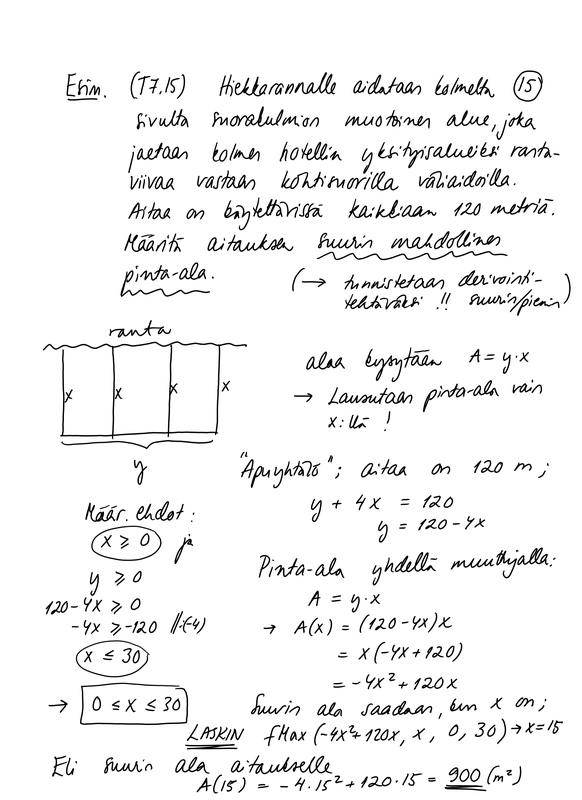 Esim. (T7.15) Hiekkarannalle aidataan kolmelta (15)
sivulta suorakulmion muotoinen alue, joka
jaetaan kolmen hotellin yksityisalueiksi ranta-
viivaa vastaan kohtisuorilla väliaidoilla.
Aitaa on käytettävissä kaikkiaan 120 metriä.
Määritä aitauksen suurin mahdollinen
pinta-ala.
(→ tunnistetaan derivointi-
tehtäväksi !! suurin/pienin)
ranta
x x x x
y
alaa kysytään A = y·x
→ Lausutaan pinta-ala vain
x:llä !
"Apuyhtälö"; aitaa on 120 m;
y + 4x = 120
y = 120-4x
Määr. ehdot:
x ≥ 0 ja
y ≥ 0
120-4x ≥ 0
-4x ≥ -120 ||:(-4)
x ≤ 30
→ 0 ≤ x ≤ 30
Pinta-ala yhdellä muuttujalla:
A = y·x
→ A(x) = (120-4x)x
= x(-4x+120)
= -4x²+120x
Suurin ala saadaan, kun x on;
LASKIN fMax(-4x²+120x, x, 0, 30) → x=15
Eli suurin ala aitaukselle
A(15) = -4·15²+120·15 = 900 (m²)